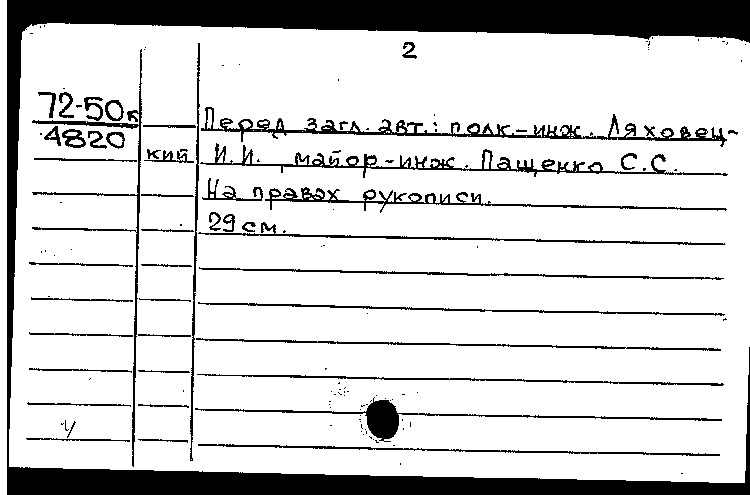 2
72-50к
4820
Перед загл. авт.: полк.-инж. Ляховец-
кий И.И., майор-инж. Пащенко С.С.
На правах рукописи.
29 см.